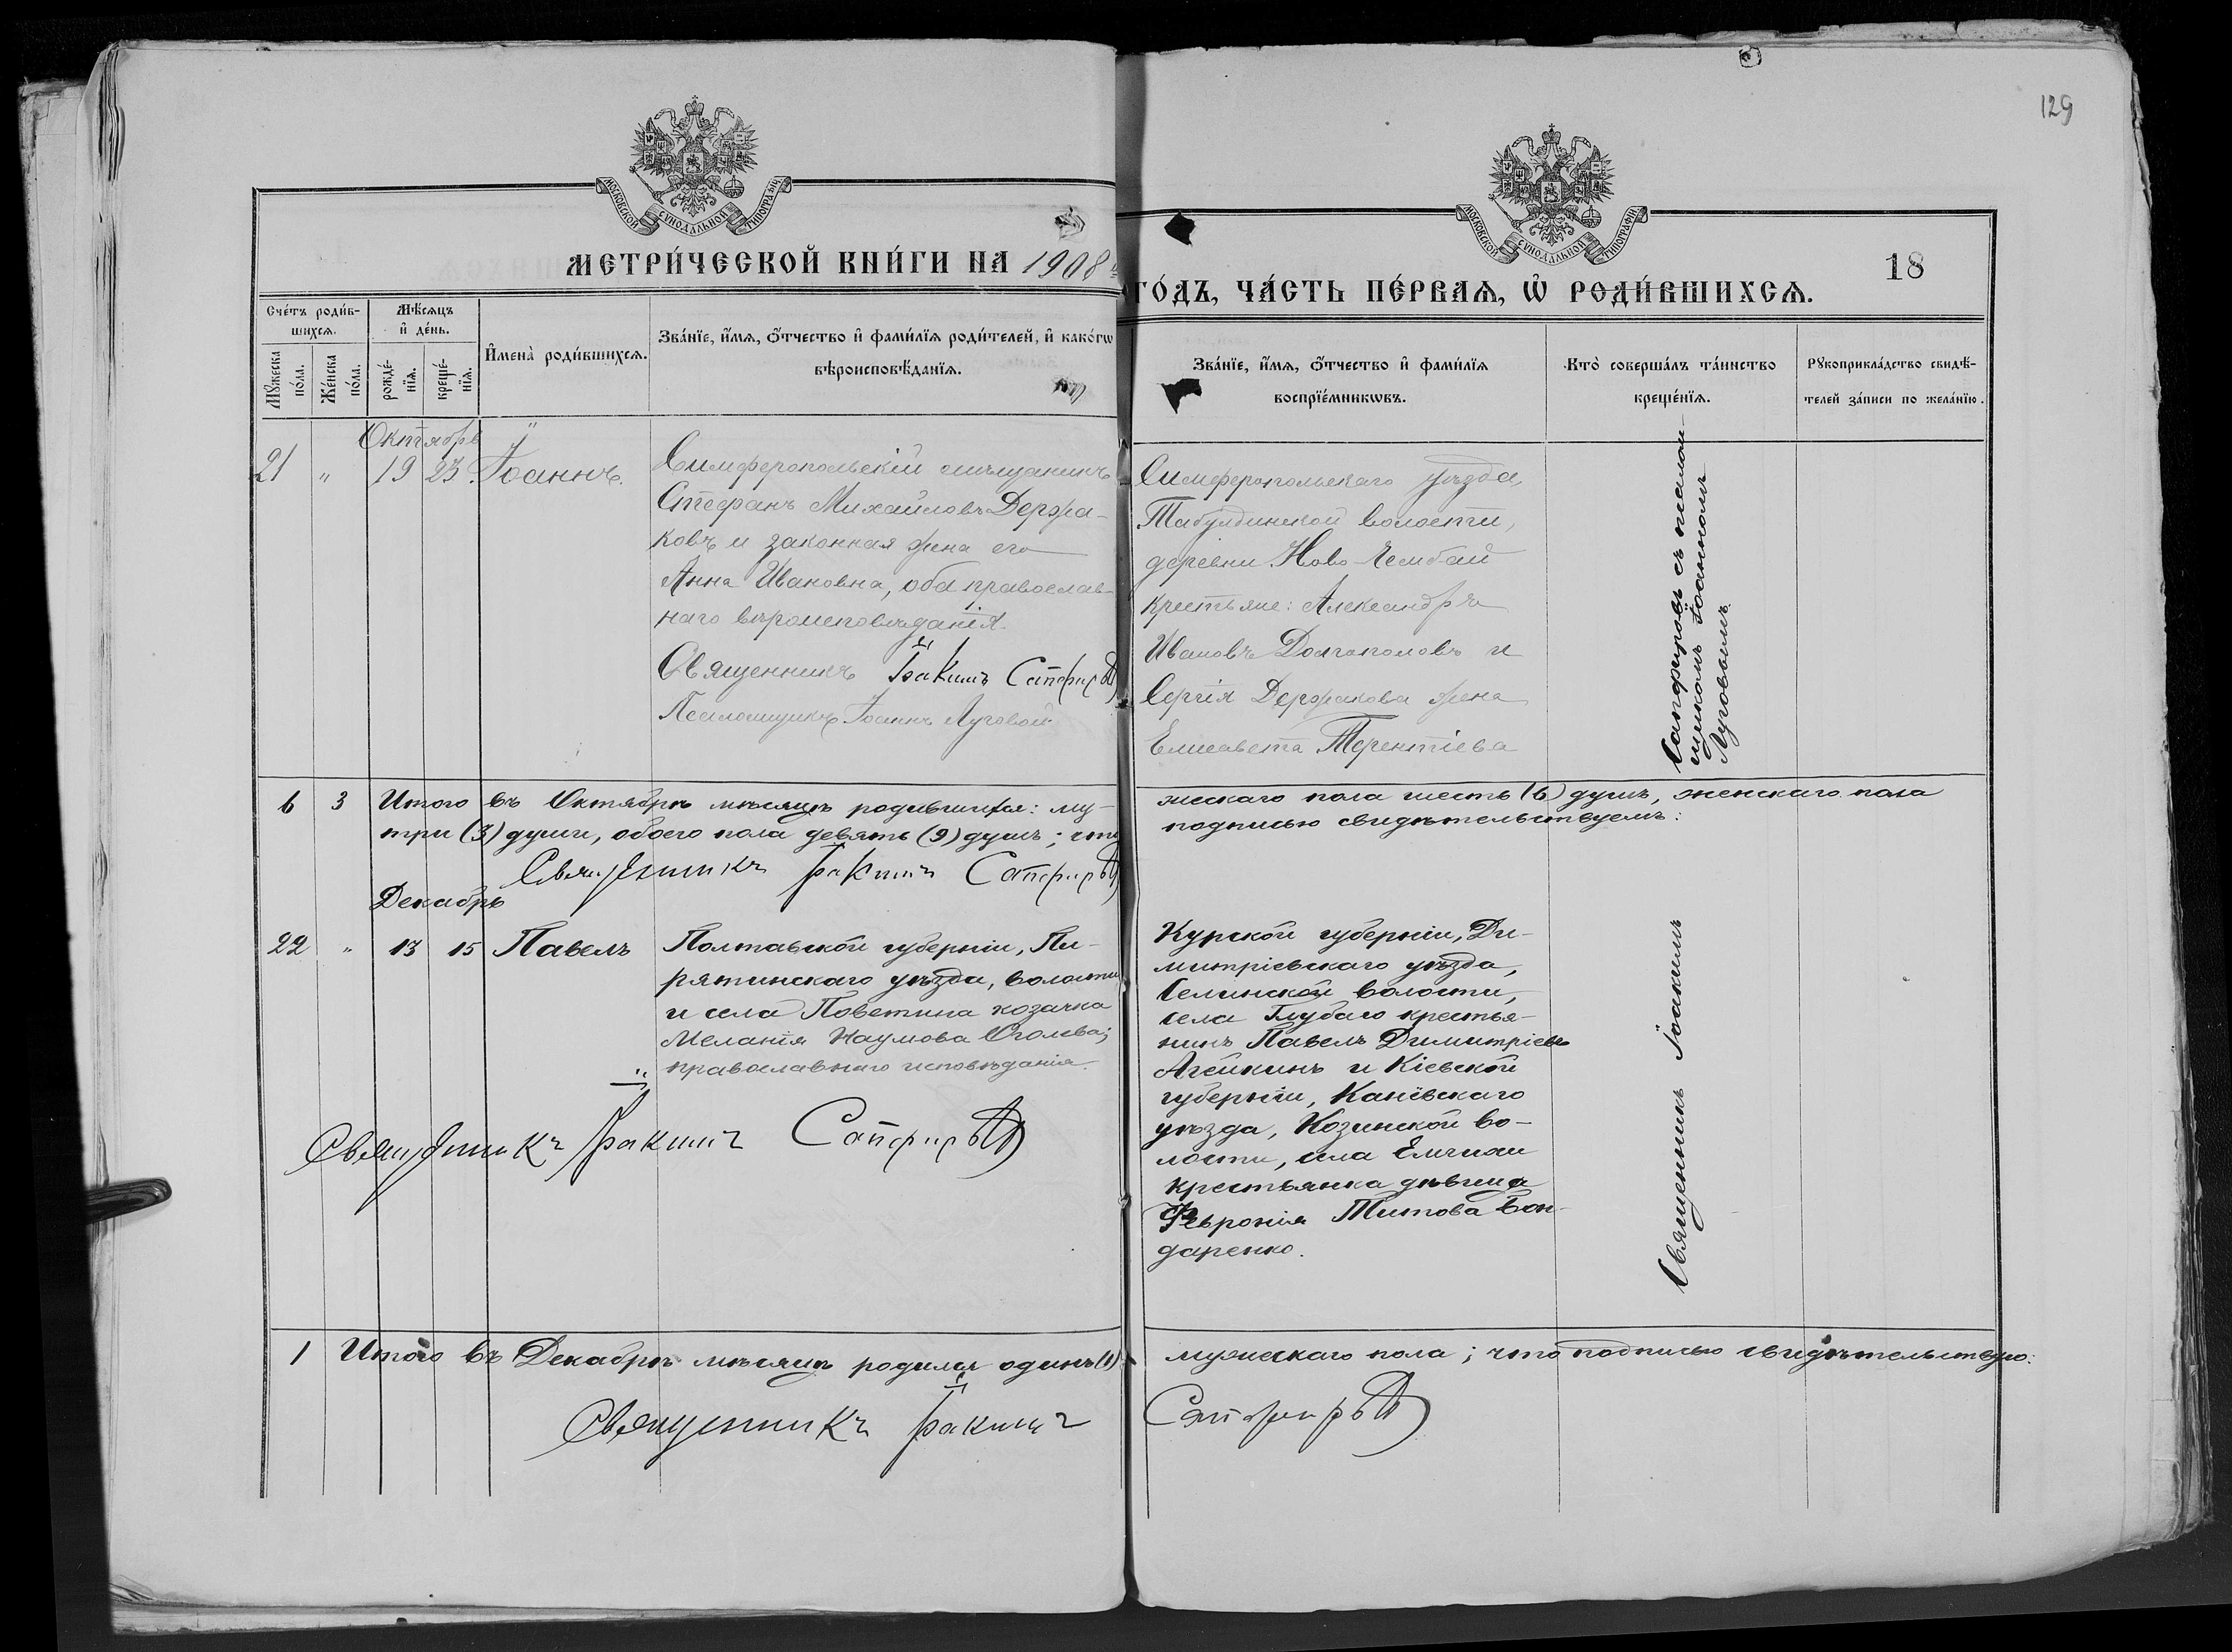 129
МОСКОВСКОЙ СѴНОДАЛЬНОЙ ТИПОГРАФІИ
МОСКОВСКОЙ СѴНОДАЛЬНОЙ ТИПОГРАФІИ
МЕТРИ́ЧЕСКОЙ КНИ́ГИ НА 1908
ГО́ДЪ, ЧА́СТЬ ПЕ́РВАЯ, Ѡ РОДИ́ВШИХСЯ.
18
Сче́тъ роди́в-
шихся.
Мѣ́сяцъ
и де́нь.
Мꙋ́жеска
по́ла.
Же́нска
по́ла.
рожде́-
нїя.
креще́-
нїя.
Имена̀ роди́вшихся.
Зва́нїе, и́мя, ѻ́тчество и фами́лїя роди́телей, и како́гѡ
вѣроисповѣ́данїя.
Зва́нїе, и́мя, ѻ́тчество и фами́лїя
воспрїе́мникѡвъ.
Кто̀ соверша́лъ та́инство
креще́нїя.
Рꙋкоприкла́дство свидѣ́-
телей за́писи по жела́нїю.
Октябрь
21 " 19 23 Іоаннъ.
Симферопольскій мѣщанинъ
Стефанъ Михайловъ Держа-
ковъ и законная жена его
Анна Ивановна, оба православ-
наго вѣроисповѣданія.
Священникъ Іоакимъ Сапфировъ
Псаломщикъ Іоаннъ Луговой
Симферопольскаго уѣзда,
Табулдинской волости,
деревни Ново-Чембай
крестьяне: Александръ
Ивановъ Долгополовъ и
Сергія Держакова жена
Елисавета Терентіева
Сапфировъ съ псалом-
щикомъ Іоанномъ
Луговымъ.
6 3 Итого въ Октябрѣ мѣсяцѣ родившихся: му-
жескаго пола шесть (6) душъ, женскаго пола
три (3) души, обоего пола девять (9) душъ; что
подписью свидѣтельствуемъ:
Священникъ Іоакимъ Сапфировъ
Декабрь
22 " 13 15 Павелъ
Полтавской губерніи, Пи-
рятинскаго уѣзда, волости
и села Поветина козачка
Меланія Наумова Оголева;
православнаго исповѣданія.
Священникъ Іоакимъ Сапфировъ
Курской губерніи, Ди-
митріевскаго уѣзда,
Селинской волости,
села Глубаго крестья-
нинъ Павелъ Димитріевъ
Агейкинъ и Кіевской
губерніи, Каневскаго
уѣзда, Козинской во-
лости, села Емчихи
крестьянка дѣвица
Февронія Титова Бон-
даренко.
Священникъ Іоакимъ
1 Итого въ Декабрѣ мѣсяцѣ родился одинъ (1)
мужескаго пола; что подписью свидѣтельствую:
Священникъ Іоакимъ Сапфировъ